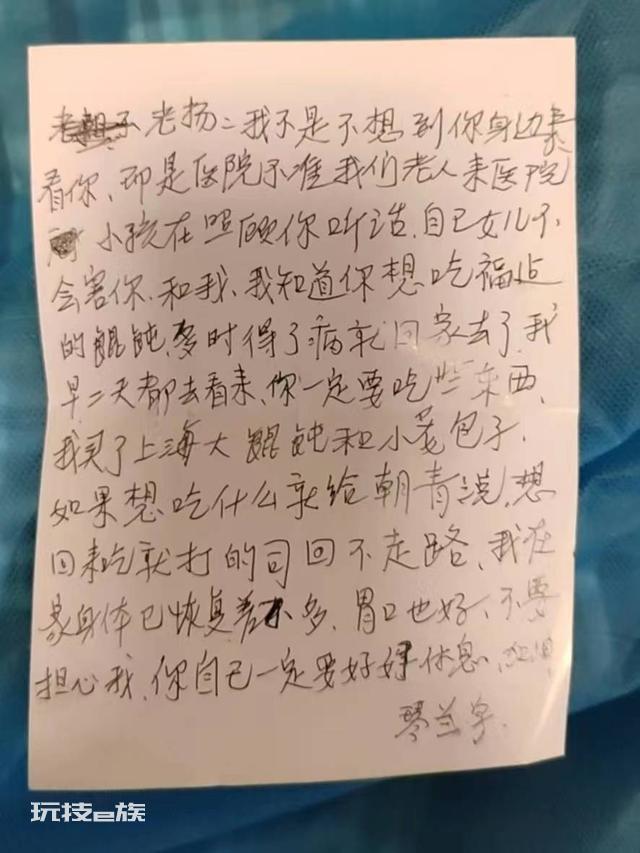 老扬:我不是不想到你身边来
看你、即是医院不准我们老人来医院
小孩在照顾你听话、自己女儿不
会害你、和我、我知道你想吃福上
的馄饨、多时得了病就回家去了、我
早二天都去看来、你一定要吃些东西、
我买了上海大馄饨和小茏包子、
如果想吃什么就给朝青说、想
回来吃就打的司回不走路、我在
家身体已恢复差不多、胃口也好、不要
担心我、你自己一定要好好休息、
琴兰字、
玩技e族